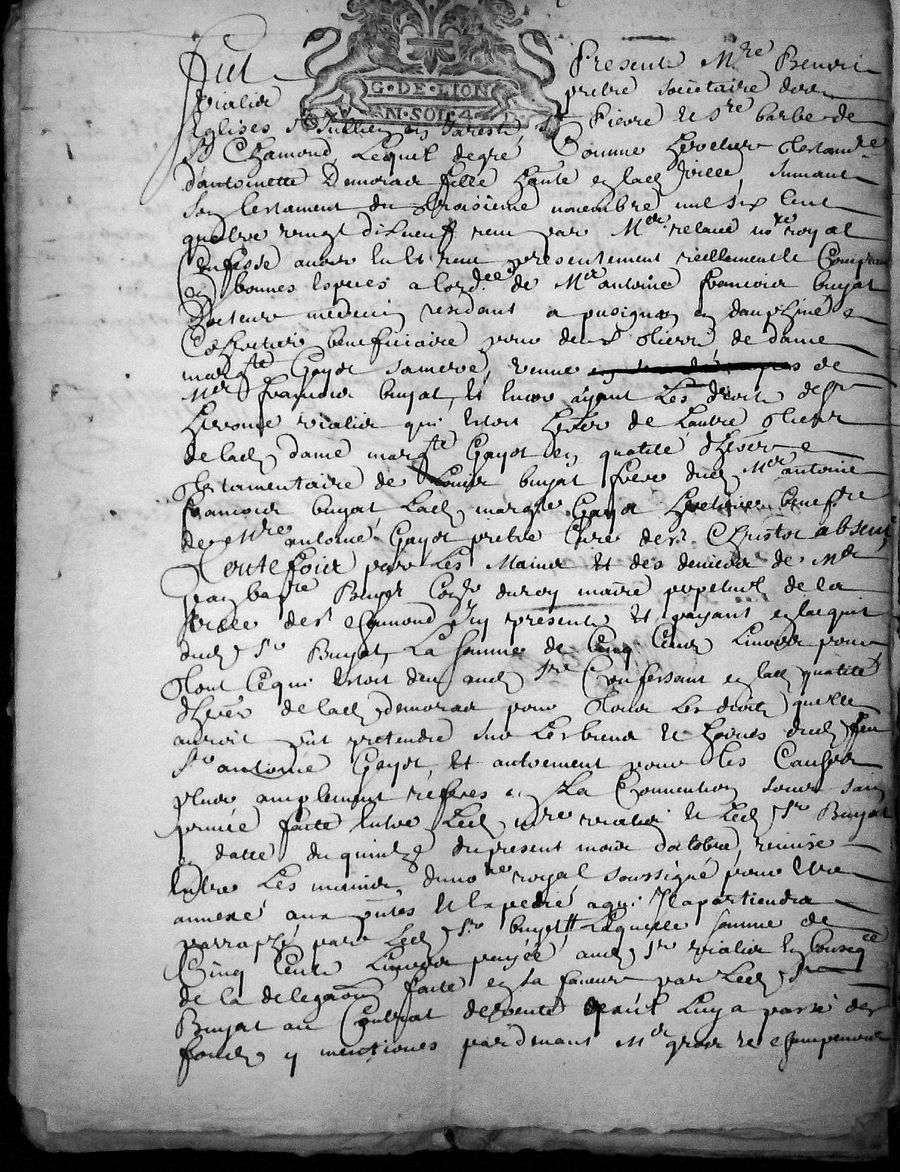 G·DE·LION
EN·SOI·4·D
Fut Present Mre Benoit
vialier prebre societaire des
Eglises St Jullien en Jarest St Pierre et Ste barbe de
St Chamond Lequel degré Comme heretier testamre
d'antoinette Demorad fille de lad ville suivant
Son testament du troisieme novembre mil six cent
quatre vingt dixneuf receu par Mer relaue nore royal
Confesse avoir eu et receu presentement reellement comptant
en bonnes especes de Mer antoine francois buyat
Docteur medecin residant a pusignan en dauphiné
Coheretier beneficiaire pour deux tiers de dame
margte Gayot sa mere, veuve de
Mer francois buyat, et encor ayant Les droit de sr
herome vialier qui estoit heter de Lautre tiers
de lad dame margte Gayot en qualité dheter
testamentaire de Louis buyat frere dud Mer antoine
francois buyat Lad margte Gayot heretiere benefre
de Mre antoine Gayot prebtre Cure de St Christot absent
toutefois par Les Mains et des deniers de Mer
Jean baptre Buyet Coner du roy maire perpetuel de la
ville de st chamond Icy present et payant en lacquit
dud Sr Buyat, La somme de Cinq Cens Livres pour
tout Ce qui estoit deu aud Sre Confessant en lad qualité
dheter de lad demorad pour tous Les droits quelle
auroit put pretendre sur Les biens et hoiries dud feu
Sr antoine Gayot, et autrement pour les Causes
plus amplement referes en La Convention sous sein
privée faite entre Led mre vialier et Led Sr Buyat
en datte du quinze du present mois doctobre, remise
Entre Les mains du nore royal soussigné pour Etre
annexé aux notes Et lapedré a qui Il apartiendra
parraphé par Led Sr buyet Laquelle somme de
Cinq Cents Livres payée aud Sr vialier En conseqce
de la delegaon faite en sa faveur par Led Sr
Buyat au Contrat de vente quil Luy a passé des
fonds y mentionés pardevant Mer